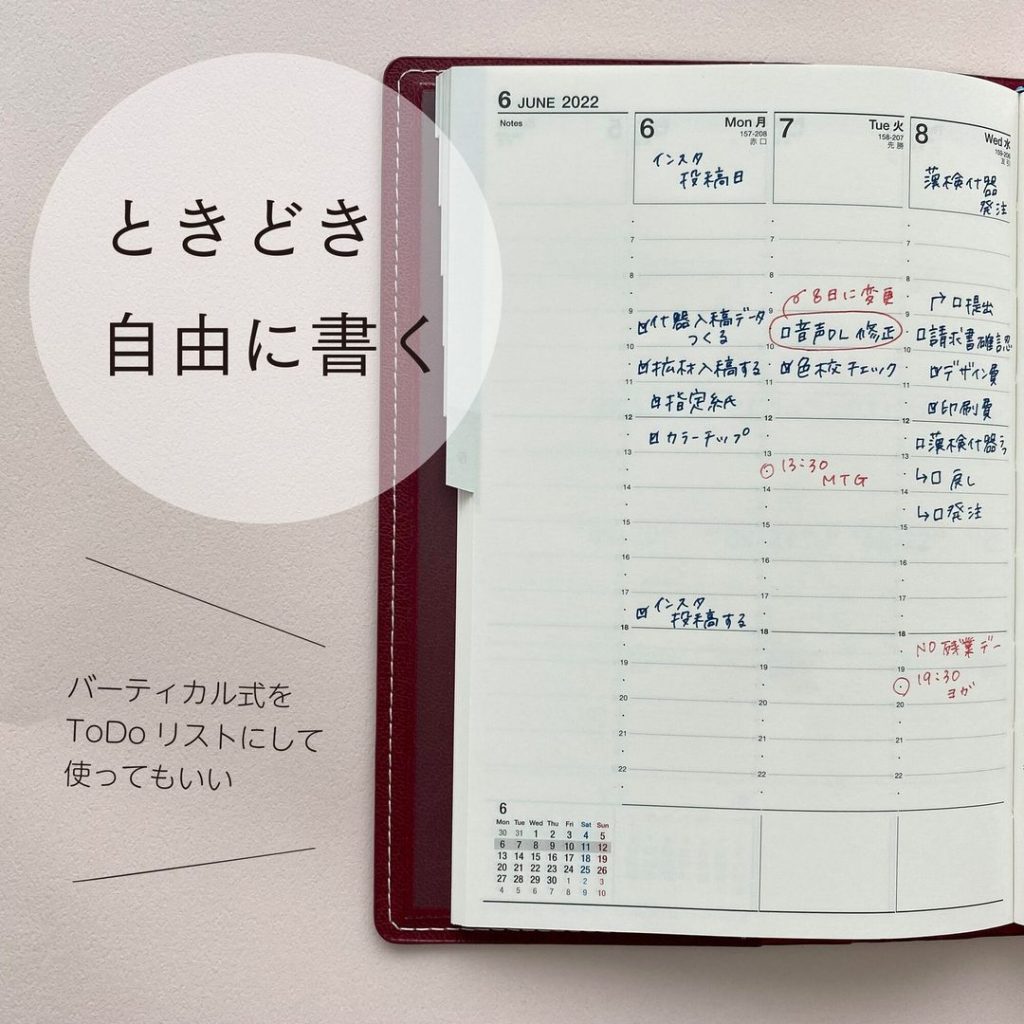 ときどき
自由に書く
バーティカル式を
ToDoリストにして
使ってもいい
6 JUNE 2022
Notes
6 Mon 月
157-208
赤口
インスタ
投稿日
7
8
9
☑什器入稿データ
つくる
10
☑拡材入稿する
11
☑指定紙
12
☑カラーチップ
13
14
15
16
17
☑インスタ
投稿する
18
19
20
21
22
7 Tue 火
158-207
先勝
7
8
8日に変更
9
□音声DL修正
10
☑色校チェック
11
12
13
13:30
MTG
14
15
16
17
18
19
20
21
22
8 Wed 水
159-206
友引
漢検什器
発注
7
8
9
□提出
10
□請求書確認
11
☑デザイン費
☑印刷費
12
□漢検什器ラフ
13
↳□戻し
14
↳□発注
15
16
17
18
NO残業デー
19
19:30
ヨガ
20
21
22
6
Mon Tue Wed Thu Fri Sat Sun
30 31 1 2 3 4 5
6 7 8 9 10 11 12
13 14 15 16 17 18 19
20 21 22 23 24 25 26
27 28 29 30 1 2 3
4 5 6 7 8 9 10